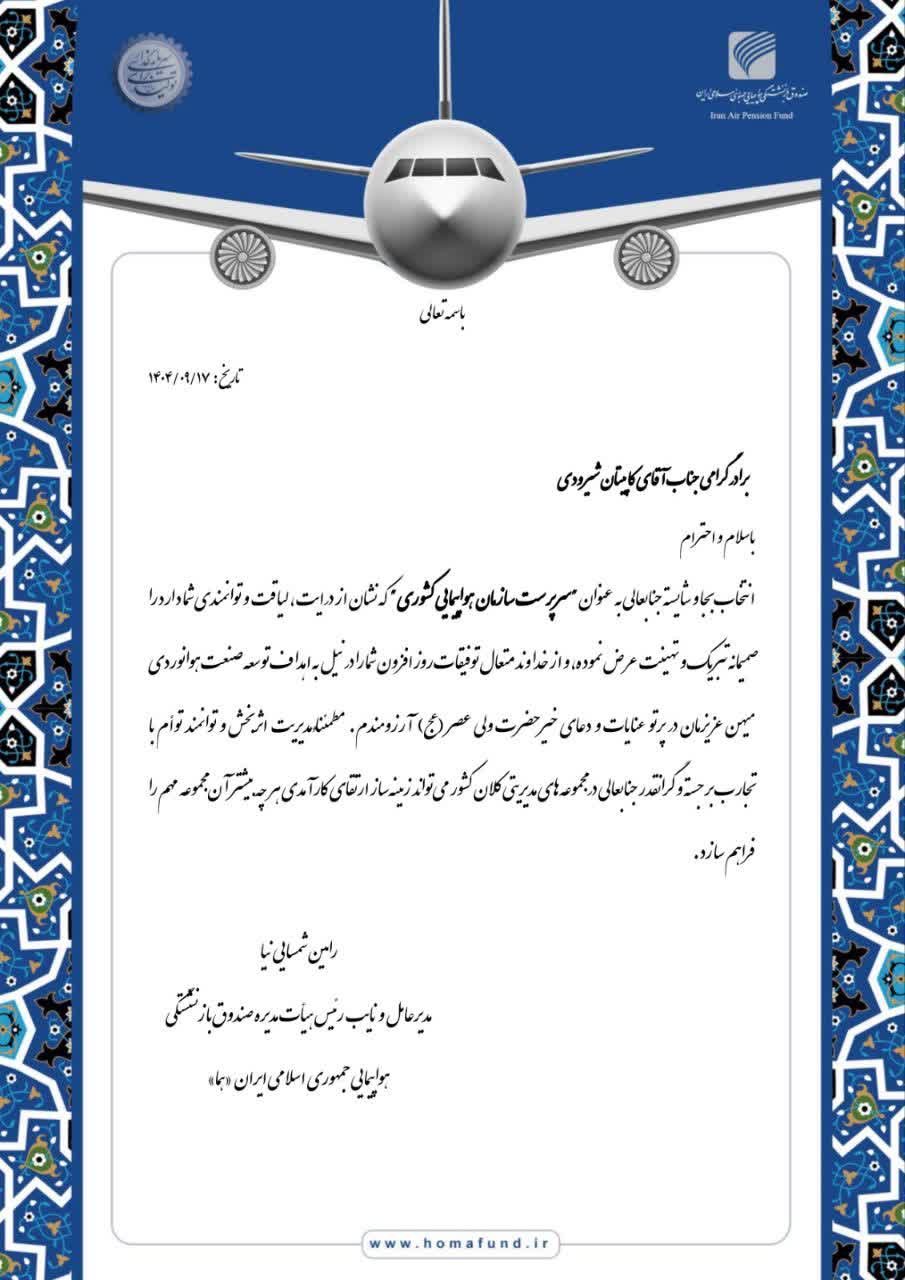 سرمایه‌گذاری برای تولید
صندوق بازنشستگی هواپیمایی جمهوری اسلامی ایران
Iran Air Pension Fund
باسمه تعالی
تاریخ: ۱۴۰۴/۰۹/۱۷
برادر گرامی جناب آقای کاپیتان شیرودی
باسلام و احترام
انتخاب بجا و شایسته جنابعالی به عنوان "سرپرست سازمان هواپیمایی کشوری" که نشان از درایت، لیاقت و توانمندی شما دارد را
صمیمانه تبریک و تهنیت عرض نموده، و از خداوند متعال توفیقات روز افزون شما را در نیل به اهداف توسعه صنعت هوانوردی
میهن عزیزمان در پرتو عنایات و دعای خیر حضرت ولی عصر (عج) آرزومندم. مطمئنا مدیریت اثربخش و توانمند توأم با
تجارب برجسته و گرانقدر جنابعالی در مجموعه های مدیریتی کلان کشور می تواند زمینه ساز ارتقای کارآمدی هرچه بیشتر آن مجموعه مهم را
فراهم سازد.
رامین شمسایی نیا
مدیرعامل و نایب رئیس هیأت مدیره صندوق بازنشستگی
هواپیمایی جمهوری اسلامی ایران «هما»
www.homafund.ir